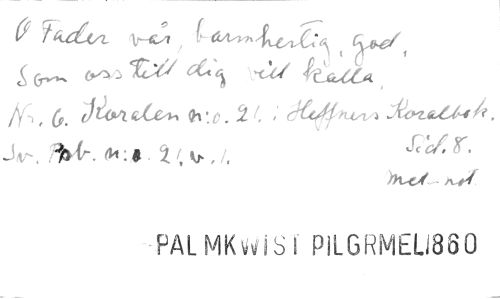 O Fader vår, barmhertig, god,
Som oss till dig vill kalla,
Nr. 6. Koralen n:o. 21. i Hæffners Koralbok.
Sid. 8.
Sv. Psb. n:o. 21. v. 1.
met-not.
PALMKWIST PILGRMEL.1860